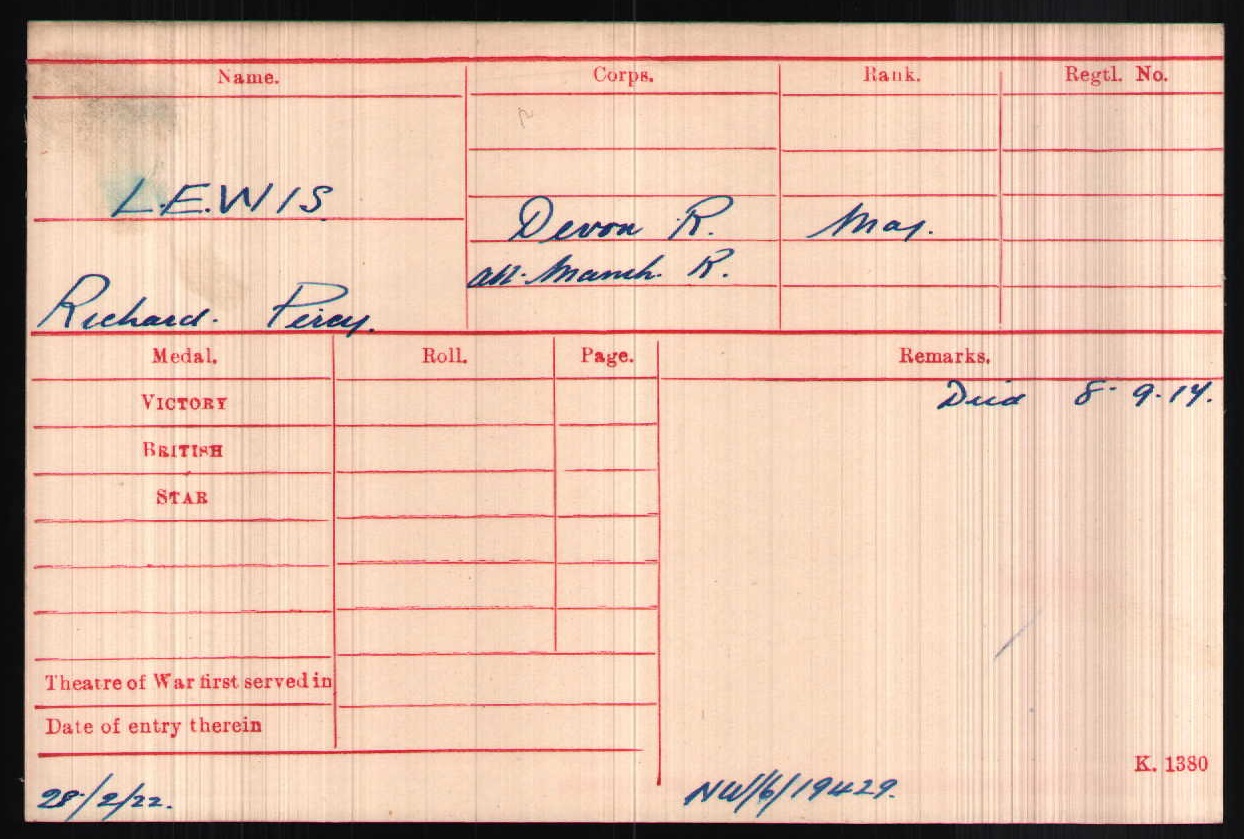 Name. Corps. Rank. Regtl. No.
LEWIS
Devon R. Maj.
att. Manch. R.
Richard. Percy.
Medal. Roll. Page. Remarks.
Died 8-9-17.
VICTORY
BRITISH
STAR
Theatre of War first served in
Date of entry therein
K. 1380
28/2/22. NW/6/19429.